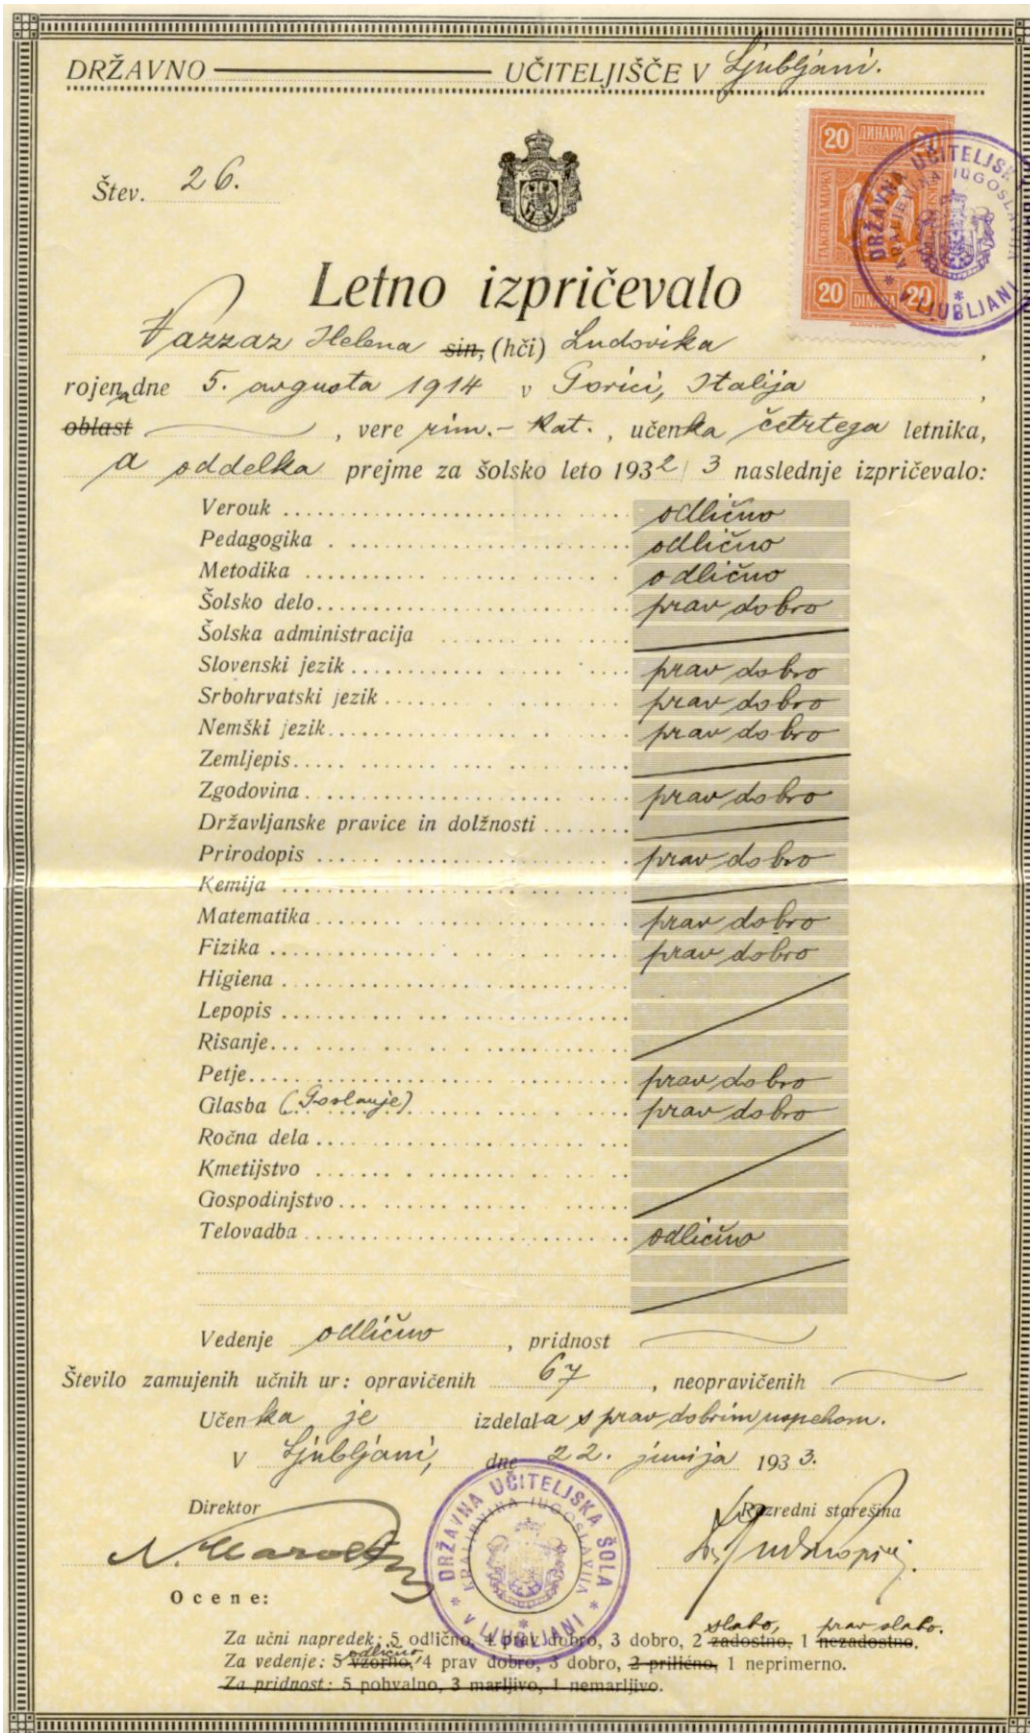 DRŽAVNO UČITELJIŠČE V Ljubljani.
20 ДИНАРА 20
ТАКСЕНА МАРКА
20 DINARA 20
DRŽAVNA UČITELJSKA
KRALJEVINA JUGOSLAVIJA
* V LJUBLJANI *
Štev. 26.
Letno izpričevalo
Vazzaz Helena sin, (hči) Ludovika ,
rojena dne 5. avgusta 1914 v Gorici, Italija ,
oblast , vere rim.-kat. , učenka četrtega letnika,
a oddelka prejme za šolsko leto 1932/3 naslednje izpričevalo:
Verouk odlično
Pedagogika odlično
Metodika odlično
Šolsko delo prav dobro
Šolska administracija
Slovenski jezik prav dobro
Srbohrvatski jezik prav dobro
Nemški jezik prav dobro
Zemljepis
Zgodovina prav dobro
Državljanske pravice in dolžnosti
Prirodopis prav dobro
Kemija
Matematika prav dobro
Fizika prav dobro
Higiena
Lepopis
Risanje
Petje prav dobro
Glasba (Goslanje) prav dobro
Ročna dela
Kmetijstvo
Gospodinjstvo
Telovadba odlično
Vedenje odlično , pridnost
Število zamujenih učnih ur: opravičenih 67 , neopravičenih
Učenka je izdelala s prav dobrim uspehom.
V Ljubljani, dne 22. junija 1933.
Direktor Razredni starešina
DRŽAVNA UČITELJSKA ŠOLA
KRALJEVINA JUGOSLAVIJA
* V LJUBLJANI *
Ocene:
slabo, prav slabo.
Za učni napredek: 5 odlično, 4 prav dobro, 3 dobro, 2 zadostno, 1 nezadostno.
odlično,
Za vedenje: 5 vzorno, 4 prav dobro, 3 dobro, 2 prilično, 1 neprimerno.
Za pridnost: 5 pohvalno, 3 marljivo, 1 nemarljivo.